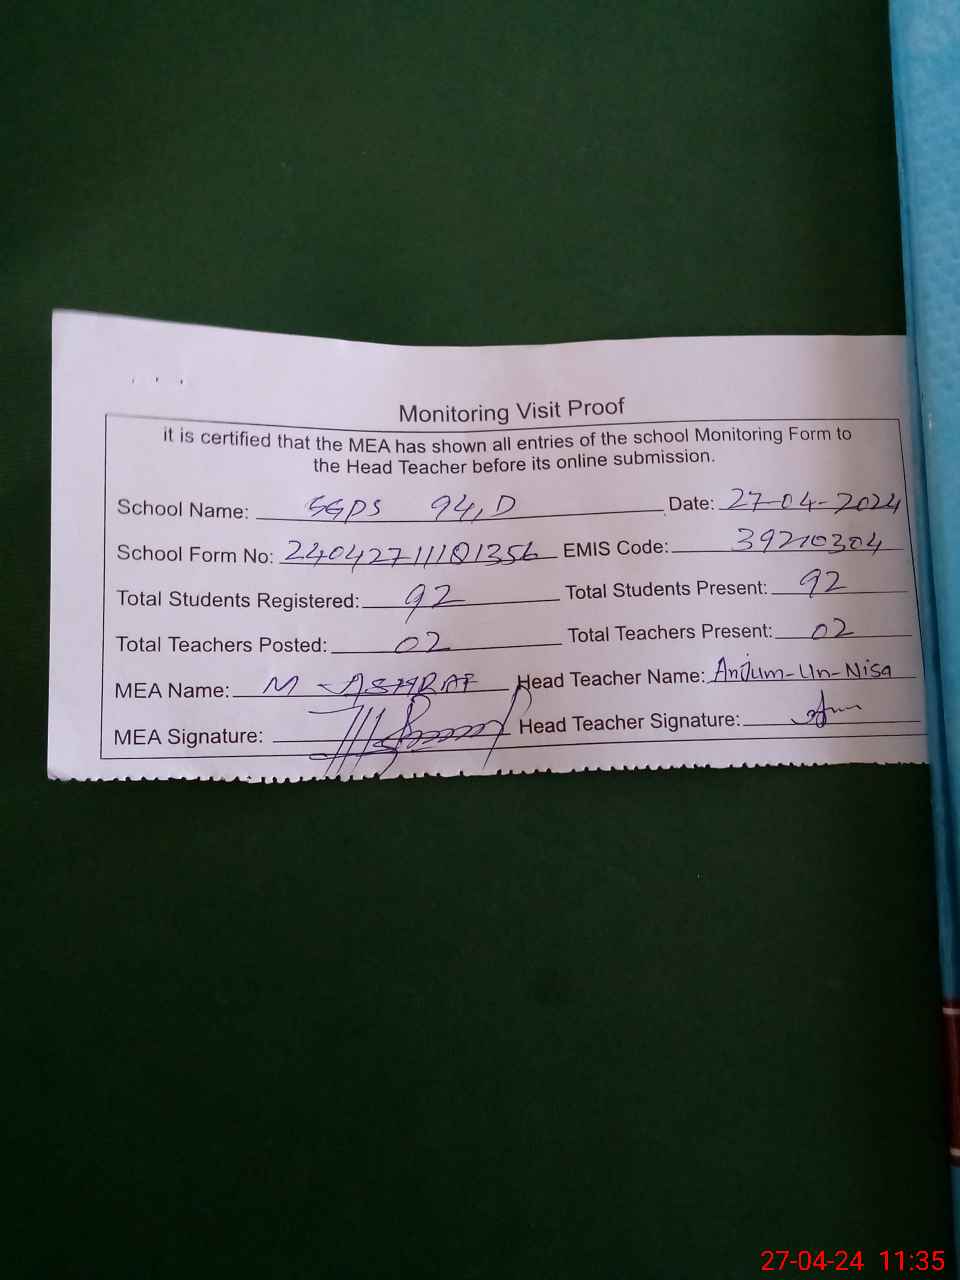 Monitoring Visit Proof
it is certified that the MEA has shown all entries of the school Monitoring Form to
the Head Teacher before its online submission.
School Name: GGPS 94,D Date: 27-04-2024
School Form No: 240427111101356 EMIS Code: 39210304
Total Students Registered: 92 Total Students Present: 92
Total Teachers Posted: 02 Total Teachers Present: 02
MEA Name: M-ASHRAF Head Teacher Name: Anjum-Un-Nisa
MEA Signature: Head Teacher Signature:
27-04-24 11:35